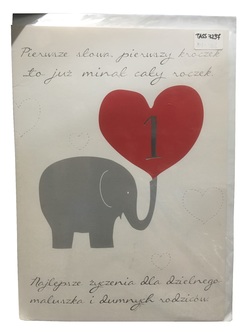 TASS 7298
Pierwsze słowa, pierwszy kroczek
to już minął cały roczek
1
Najlepsze życzenia dla dzielnego
maluszka i dumnych rodziców